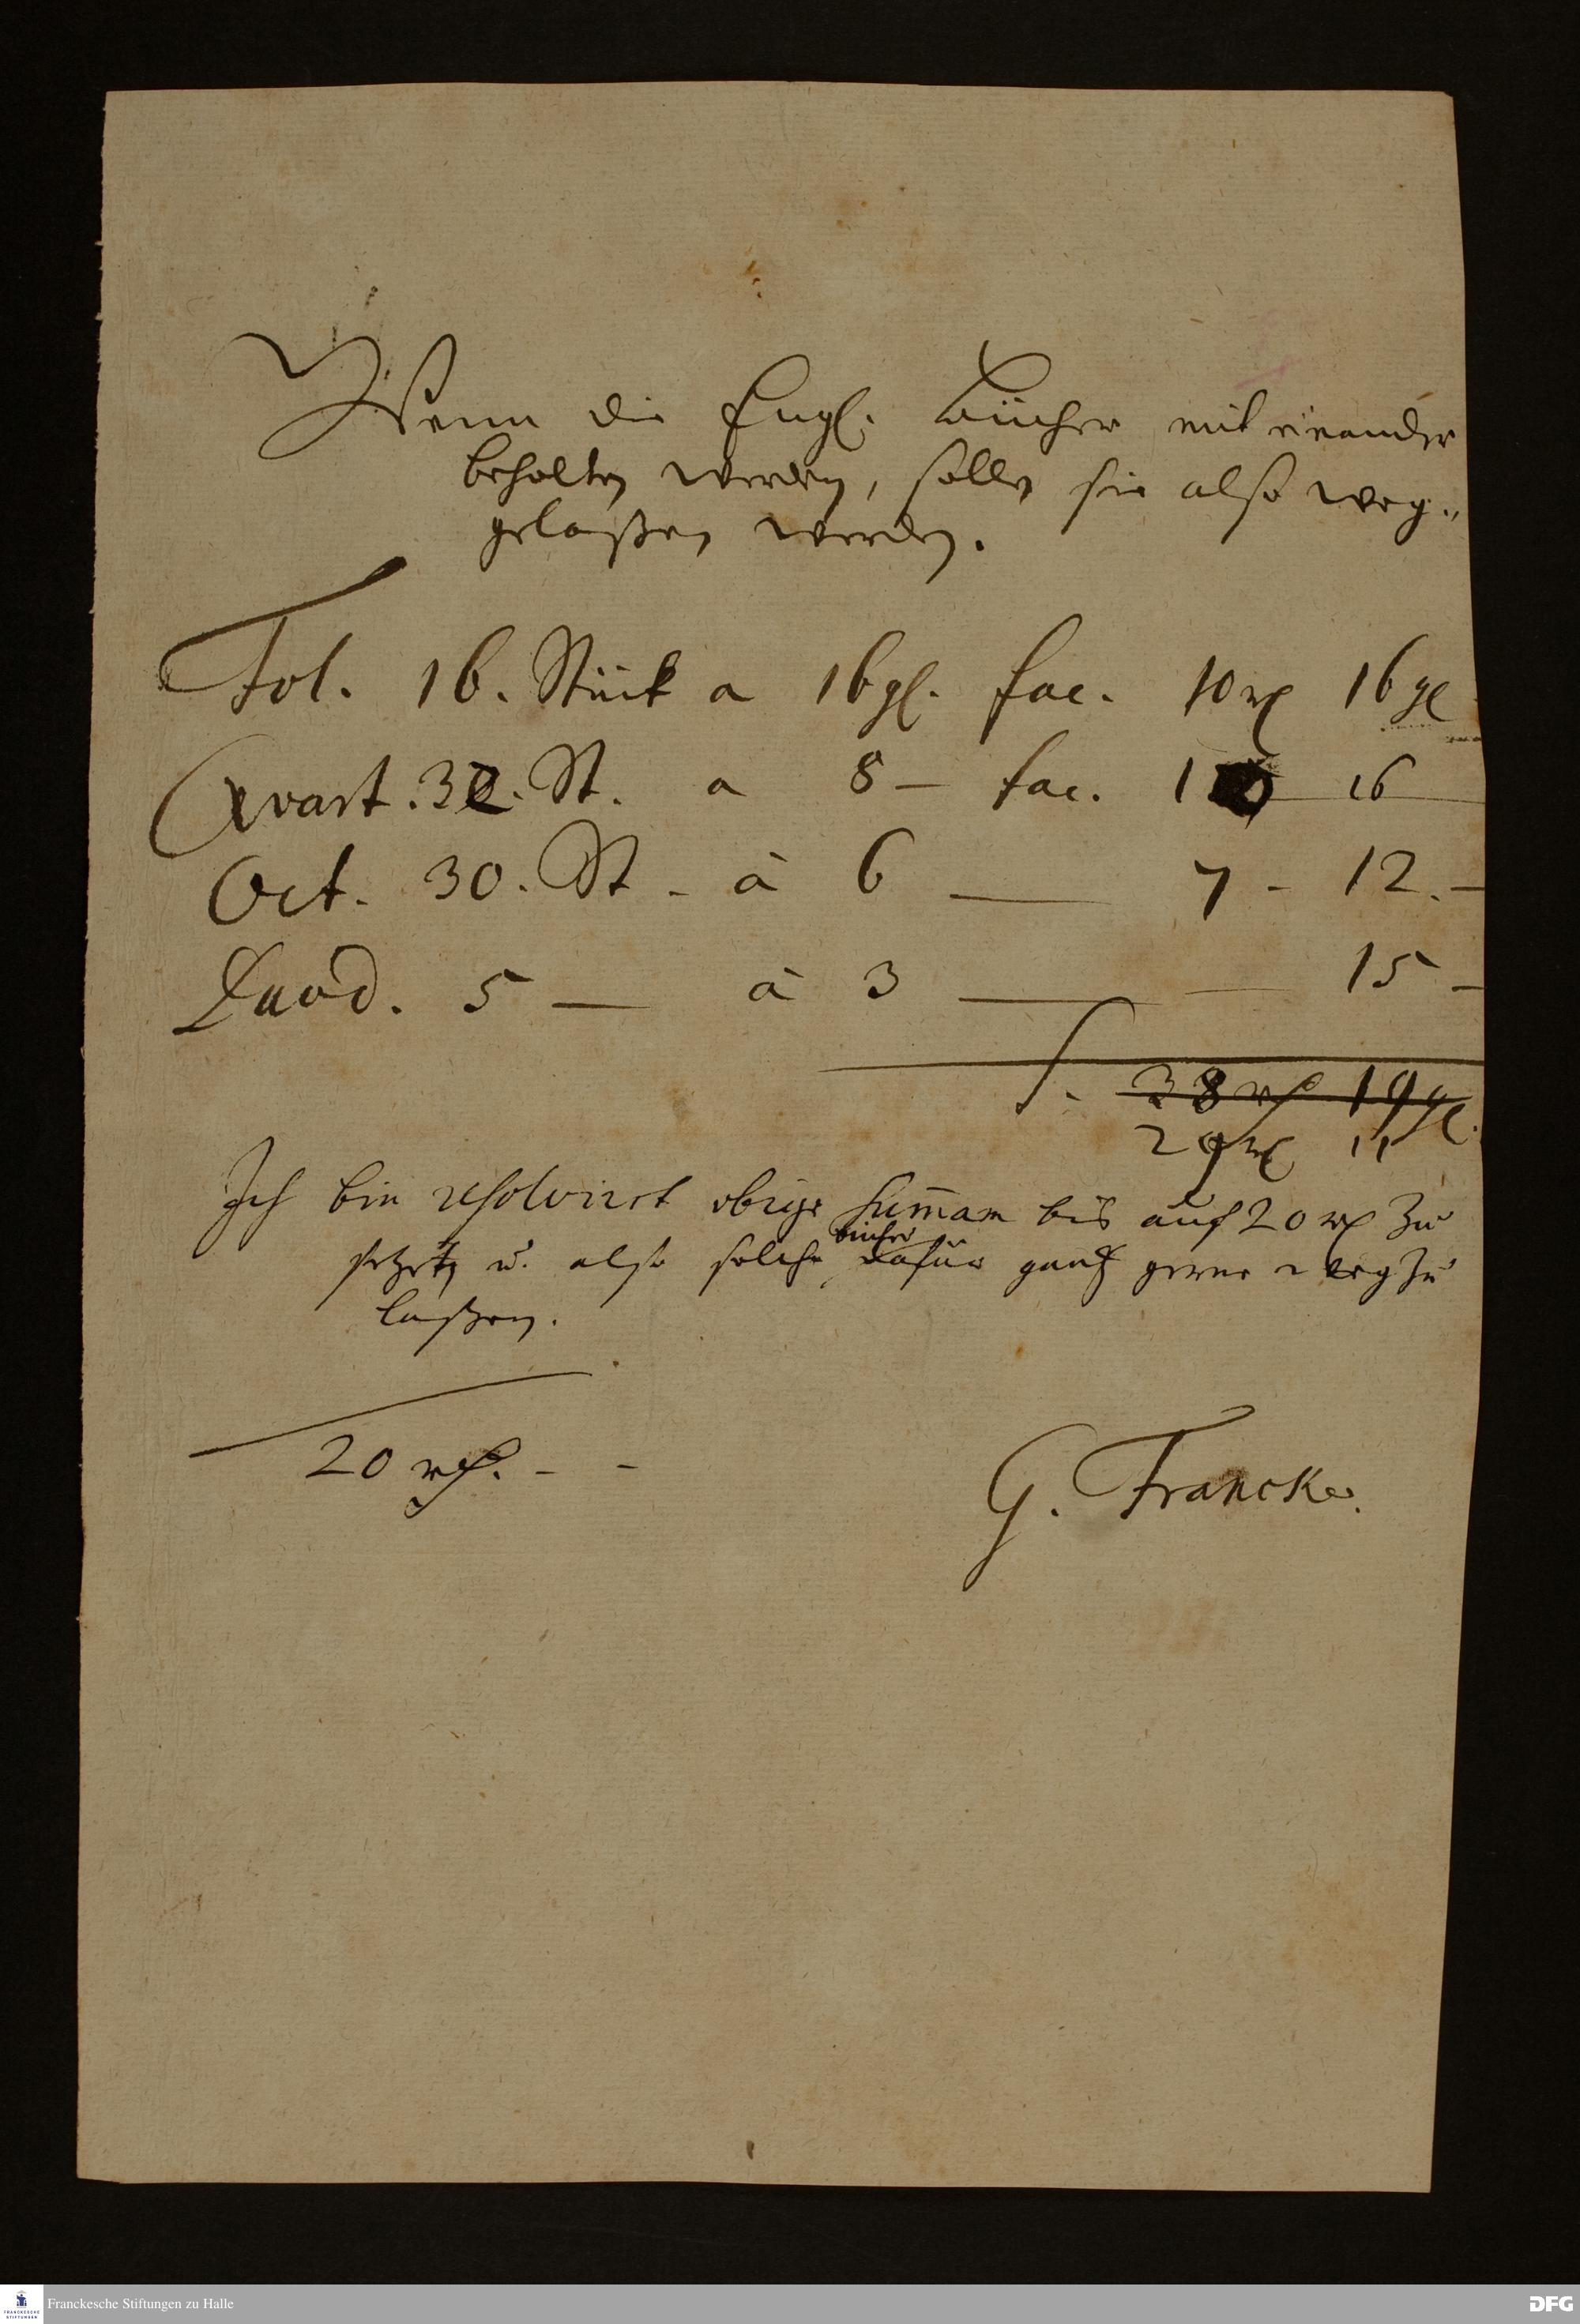 Wenn die Engl. Bücher mit einander
behalten werden, sollen sie also weg-
gelaßen werden.
Fol. 16. Stück a 16 gl. fac. 10 rth 16 gl
Qvart. 32. St. a 8 – fac. 1 16
Oct. 30. St - à 6 — 7 - 12. –
Duod. 5 — à 3 — — 15 –
S. 38 rth 19 gl.
29 rth 11
Ich bin resolviret obige Sum̄am bis auf 20 rth zu
setzen u. also solche bücher dafür gantz gerne weg zu
laßen.
20 rth. - -
G. Francke.
Franckesche Stiftungen zu Halle
FRANCKESCHE STIFTUNGEN
DFG